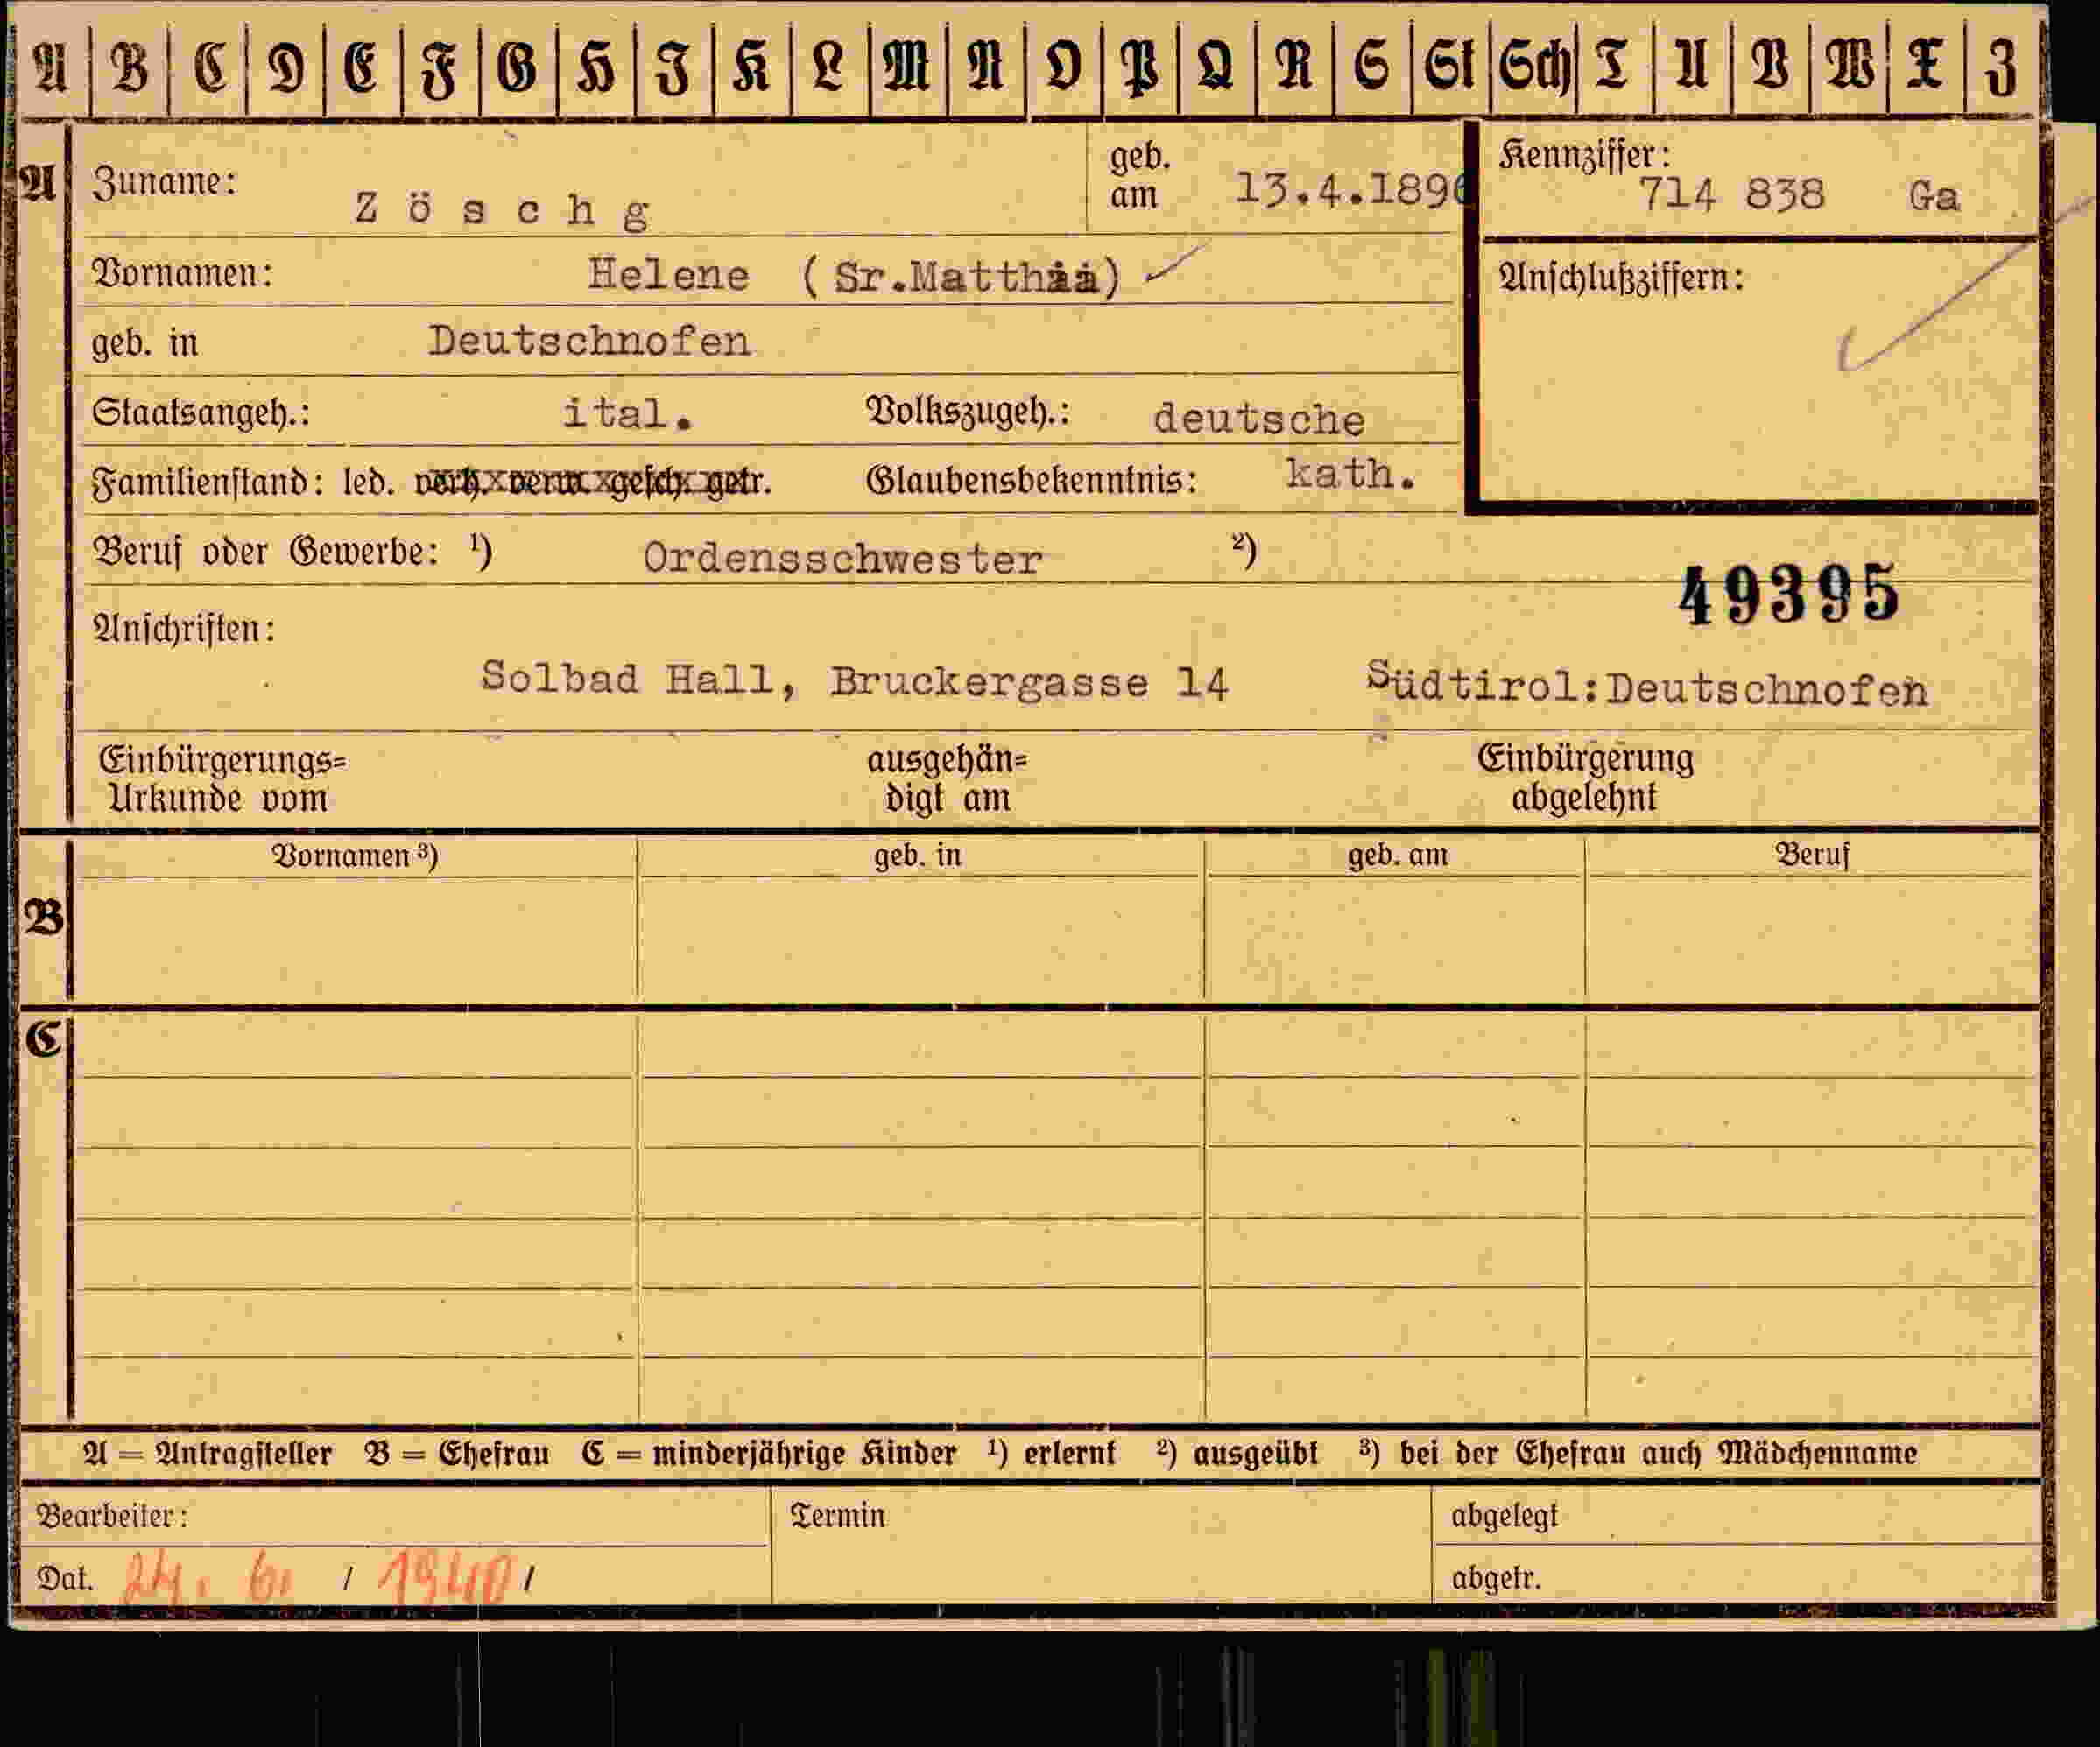 A B C D E F G H J K L M N O P Q R S St Sch T U V W X Z
A Zuname: Zöschg geb. am 13.4.1896 Kennziffer: 714 838 Ga
Vornamen: Helene (Sr.Matthäa) Anschlußziffern:
geb. in Deutschnofen
Staatsangeh.: ital. Volkszugeh.: deutsche
Familienstand: led. verh. verw. gesch. getr. Glaubensbekenntnis: kath.
Beruf oder Gewerbe: ¹) Ordensschwester ²)
49395
Anschriften:
Solbad Hall, Bruckergasse 14 Südtirol:Deutschnofen
Einbürgerungs= ausgehän= Einbürgerung
Urkunde vom digt am abgelehnt
Vornamen ³) geb. in geb. am Beruf
B
C
A = Antragsteller B = Ehefrau C = minderjährige Kinder ¹) erlernt ²) ausgeübt ³) bei der Ehefrau auch Mädchenname
Bearbeiter: Termin abgelegt
Dat. 24. 6. / 1940 / abgetr.